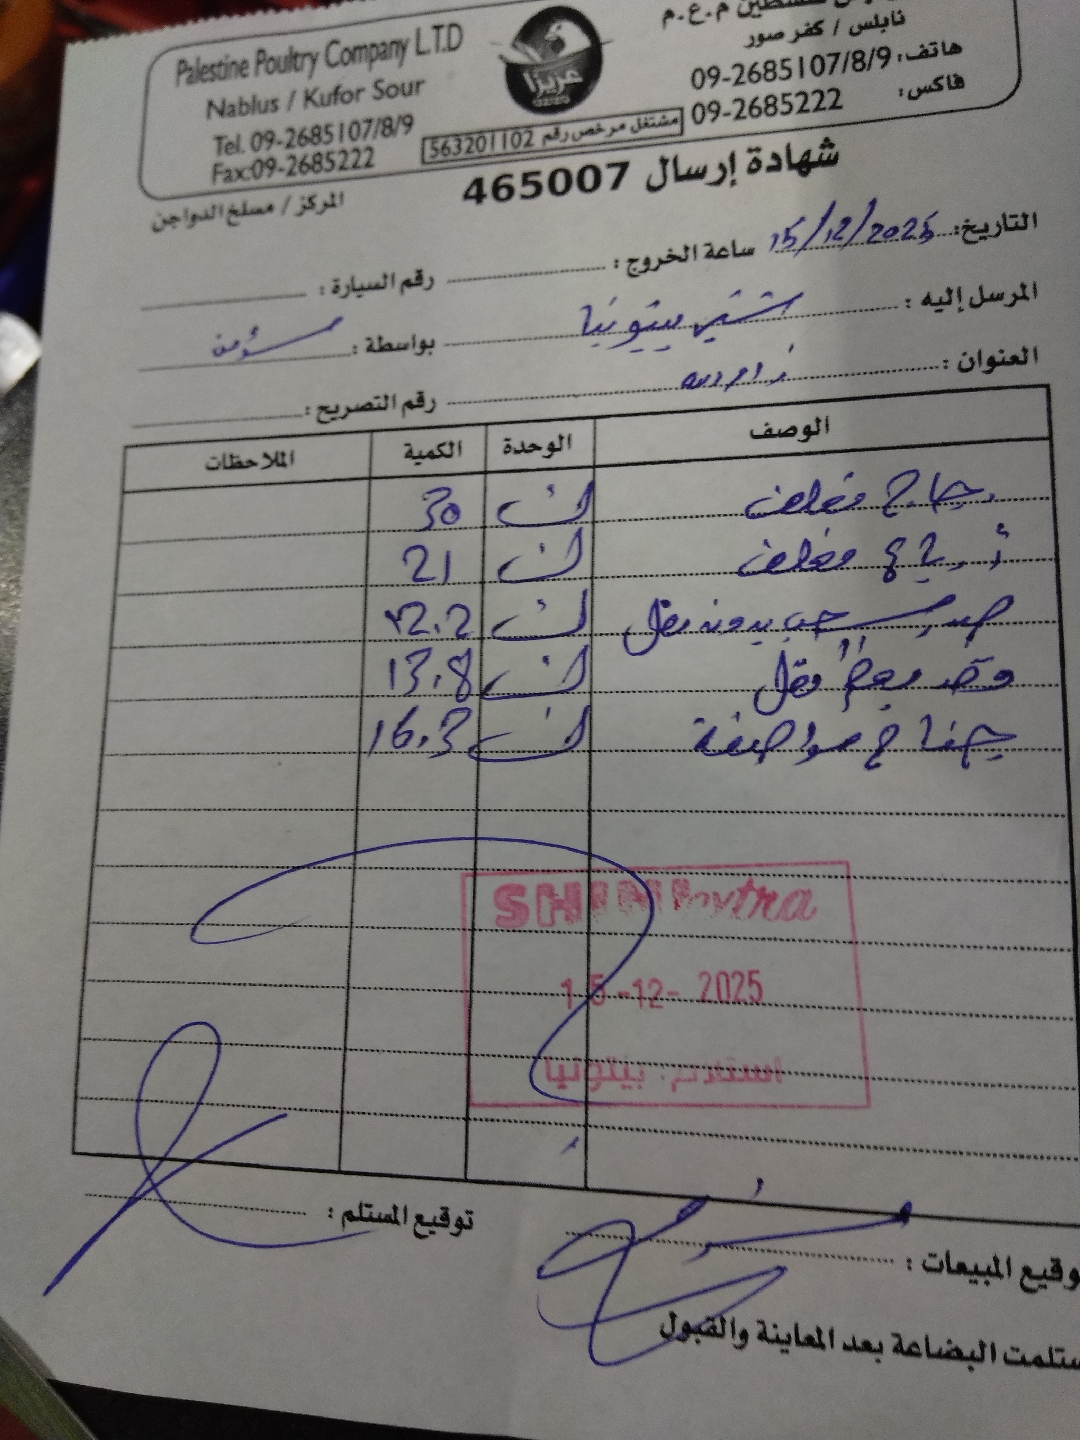 Palestine Poultry Company L.T.D
Nablus / Kufor Sour
Tel. 09-2685107/8/9
Fax:09-2685222
عزيزا
فلسطين م.ع.م
نابلس / كفر صور
هاتف: 09-2685107/8/9
فاكس: 09-2685222
مشتغل مرخص رقم 563201102
شهادة إرسال 465007
المركز / مسلخ الدواجن
التاريخ: 15/12/2025 ساعة الخروج: رقم السيارة:
المرسل إليه: بيتونيا بواسطة:
العنوان: رام الله رقم التصريح:
الوصف الوحدة الكمية الملاحظات
دجاج مغلف ك 30
أرباع مغلف ك 21
22.2
13.8
جناح مواصفة ك 16.3
SHINI Extra
15-12-2025
استلام بيتونيا
توقيع المستلم:
توقيع المبيعات:
استلمت البضاعة بعد المعاينة والقبول